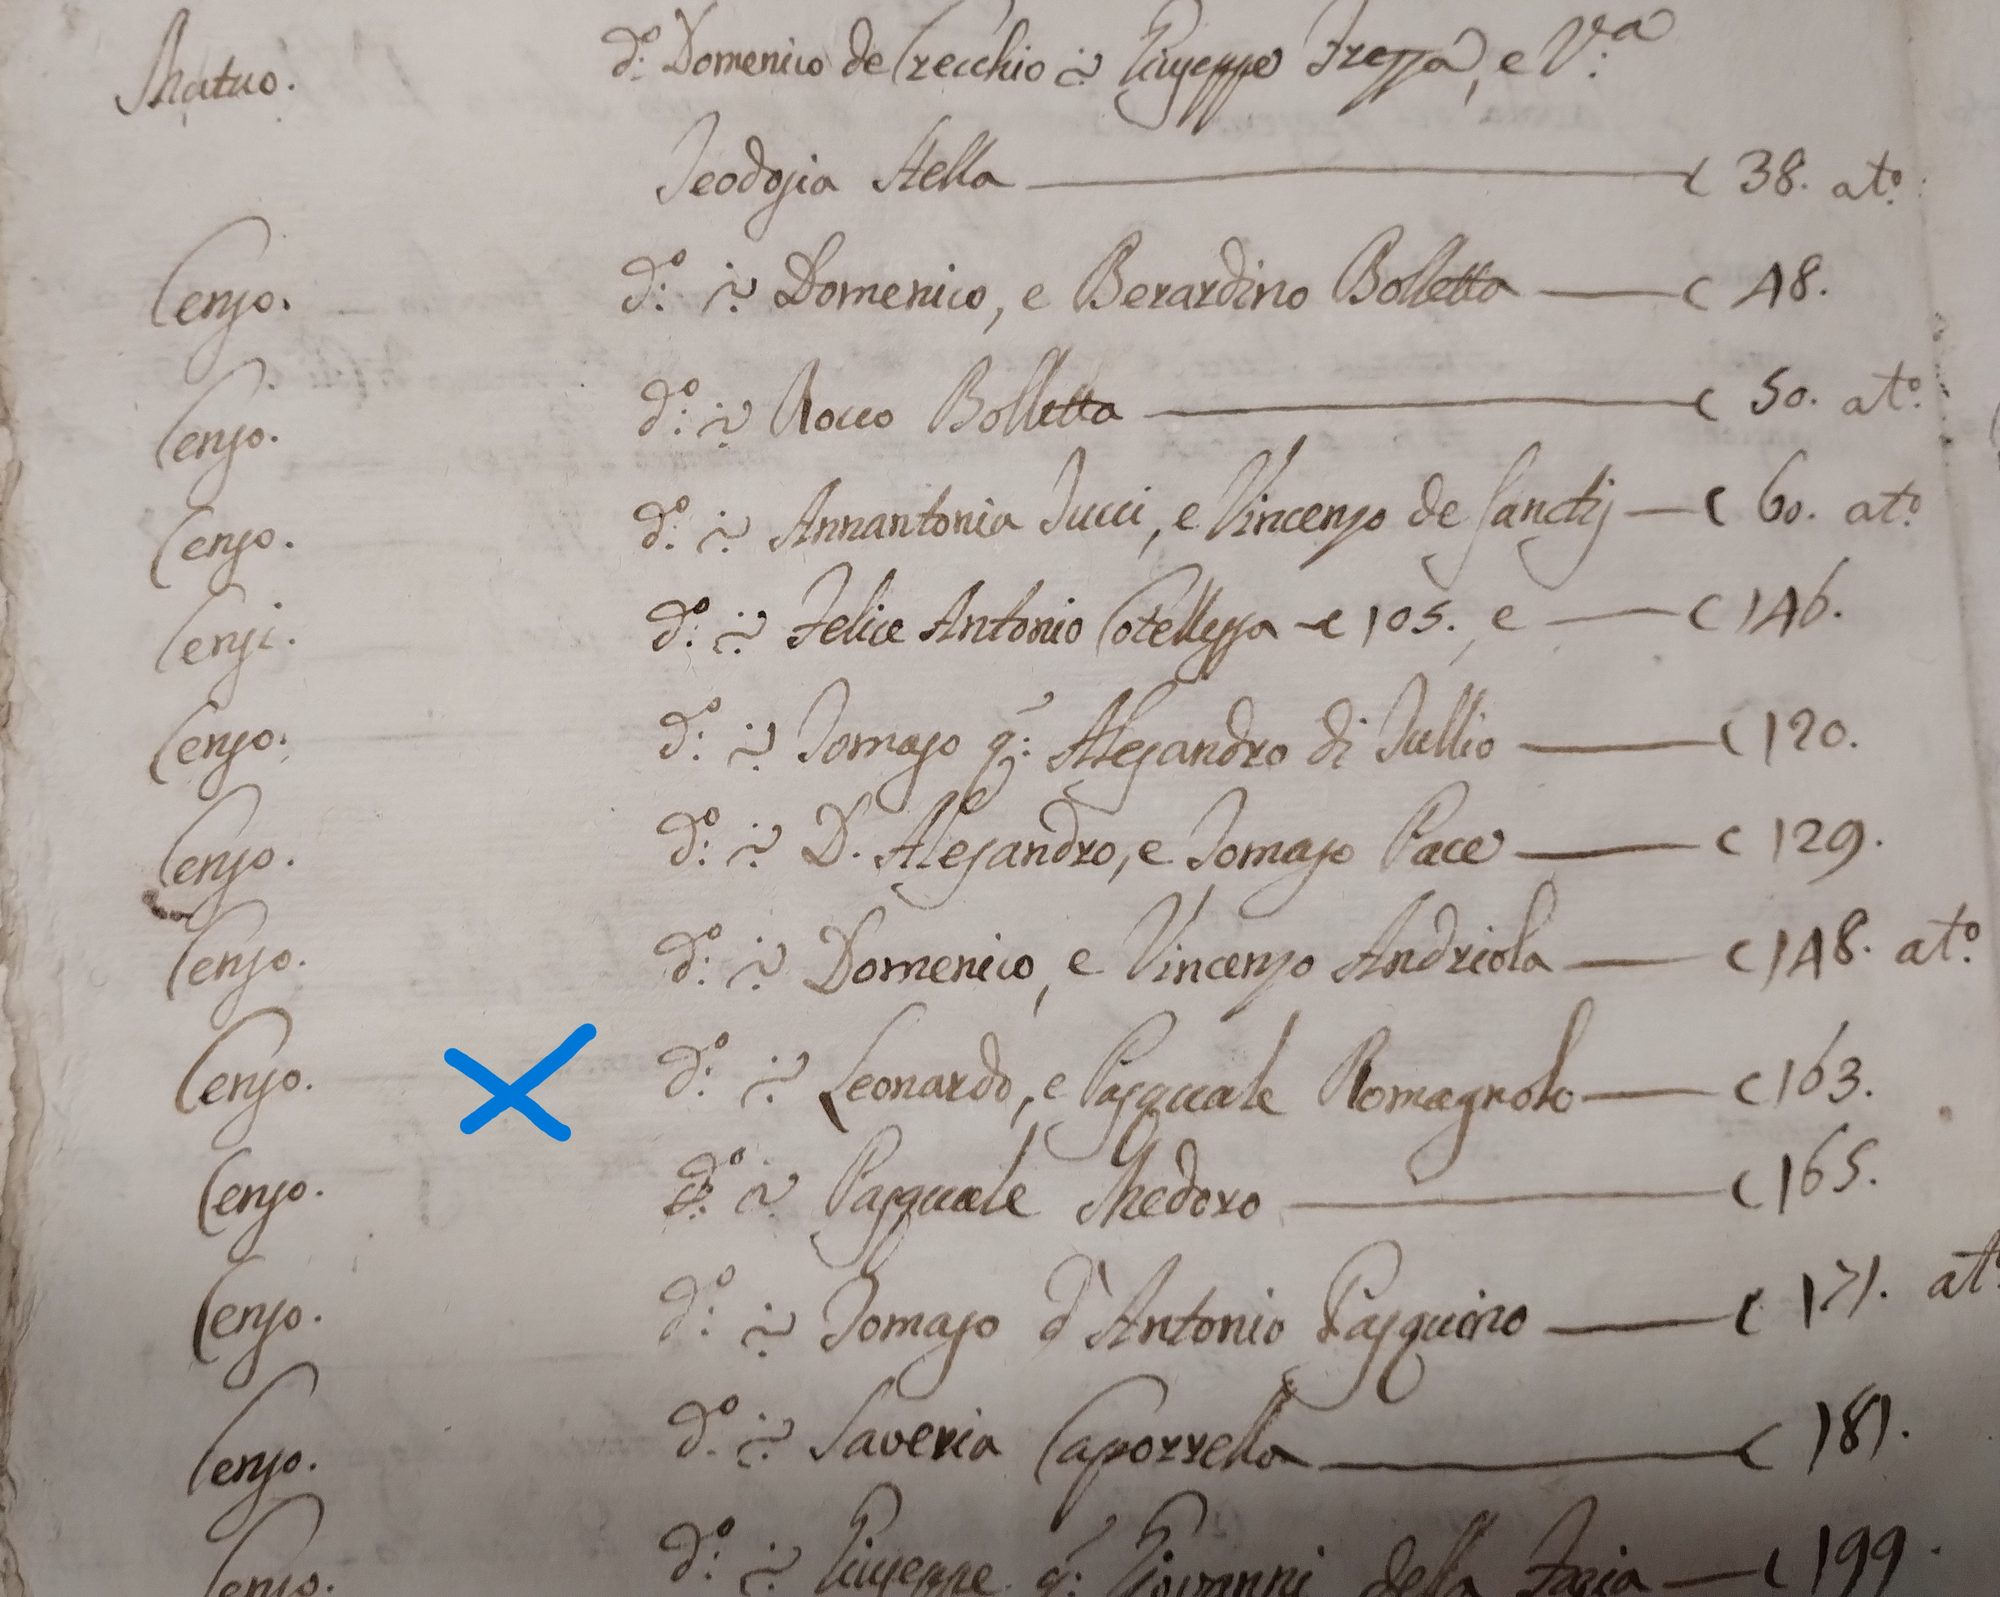 Mutuo. d.º Domenico de Crecchio c.ª Giuseppe Frezza, e V.ª
Teodosia Stella — c 38. at.º
Censo. d.º c.ª Domenico, e Berardino Bolletta — c 48.
Censo. d.º c.ª Rocco Bolletta — c 50. at.º
Censo. d.º c.ª Annantonia Tucci, e Vincenzo de Sanctis — c 60. at.º
Censi. d.º c.ª Felice Antonio Cotellessa c 105., e — c 146.
Censo. d.º c.ª Tomaso q.ᵐ Alesandro di Tullio — c 120.
Censo. d.º c.ª D. Alesandro, e Tomaso Pace — c 129.
Censo. d.º c.ª Domenico, e Vincenzo Andriola — c 148. at.º
Censo. d.º c.ª Leonardo, e Pasquale Romagnolo — c 163.
Censo. d.º c.ª Pasquale Medoro — c 165.
Censo. d.º c.ª Tomaso d'Antonio Pasquino — c 171. at.º
Censo. d.º c.ª Saveria Caporrella — c 181.
Censo. d.º c.ª Giuseppe q.ᵐ Giovanni della Fazia — c 199.